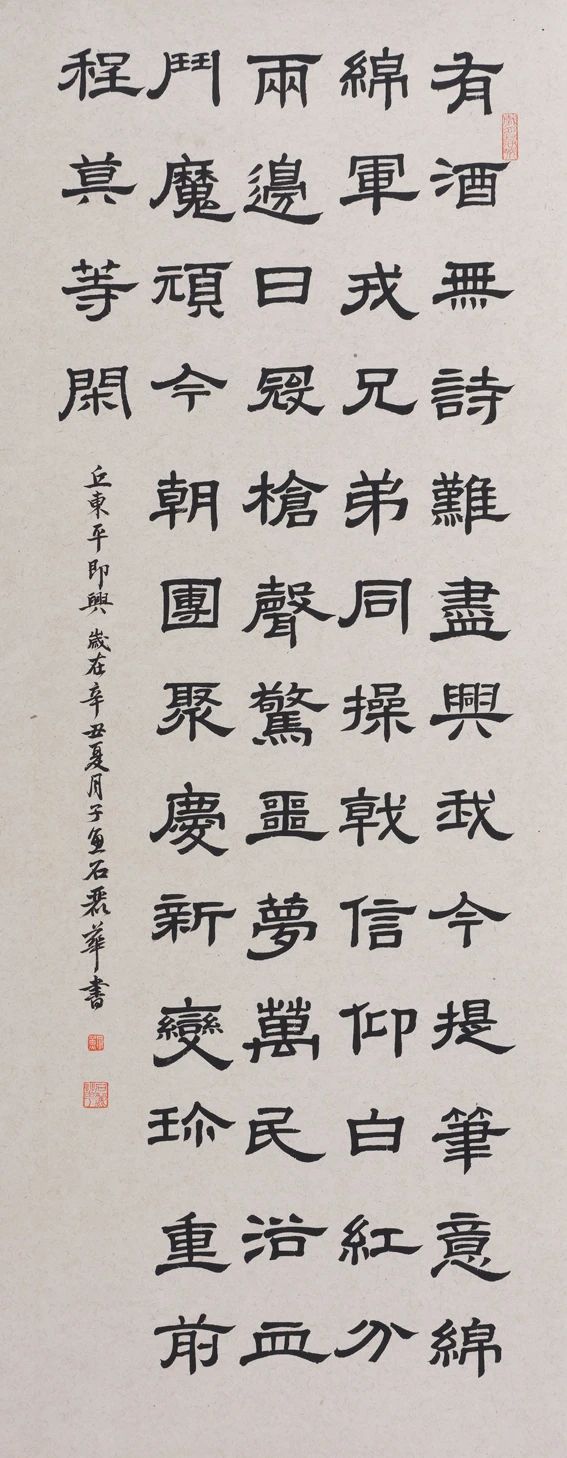 有酒無詩難盡興我今提筆意綿
綿軍戎兄弟同操戟信仰白紅分
兩邊日冦槍聲驚噩夢萬民浴血
鬥魔頑今朝團聚慶新變珍重前
程莫等閑
丘東平即興 歲在辛丑夏月子魚石華書